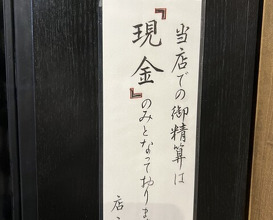 当店での御精算は
『現金』のみとなって切りま
店